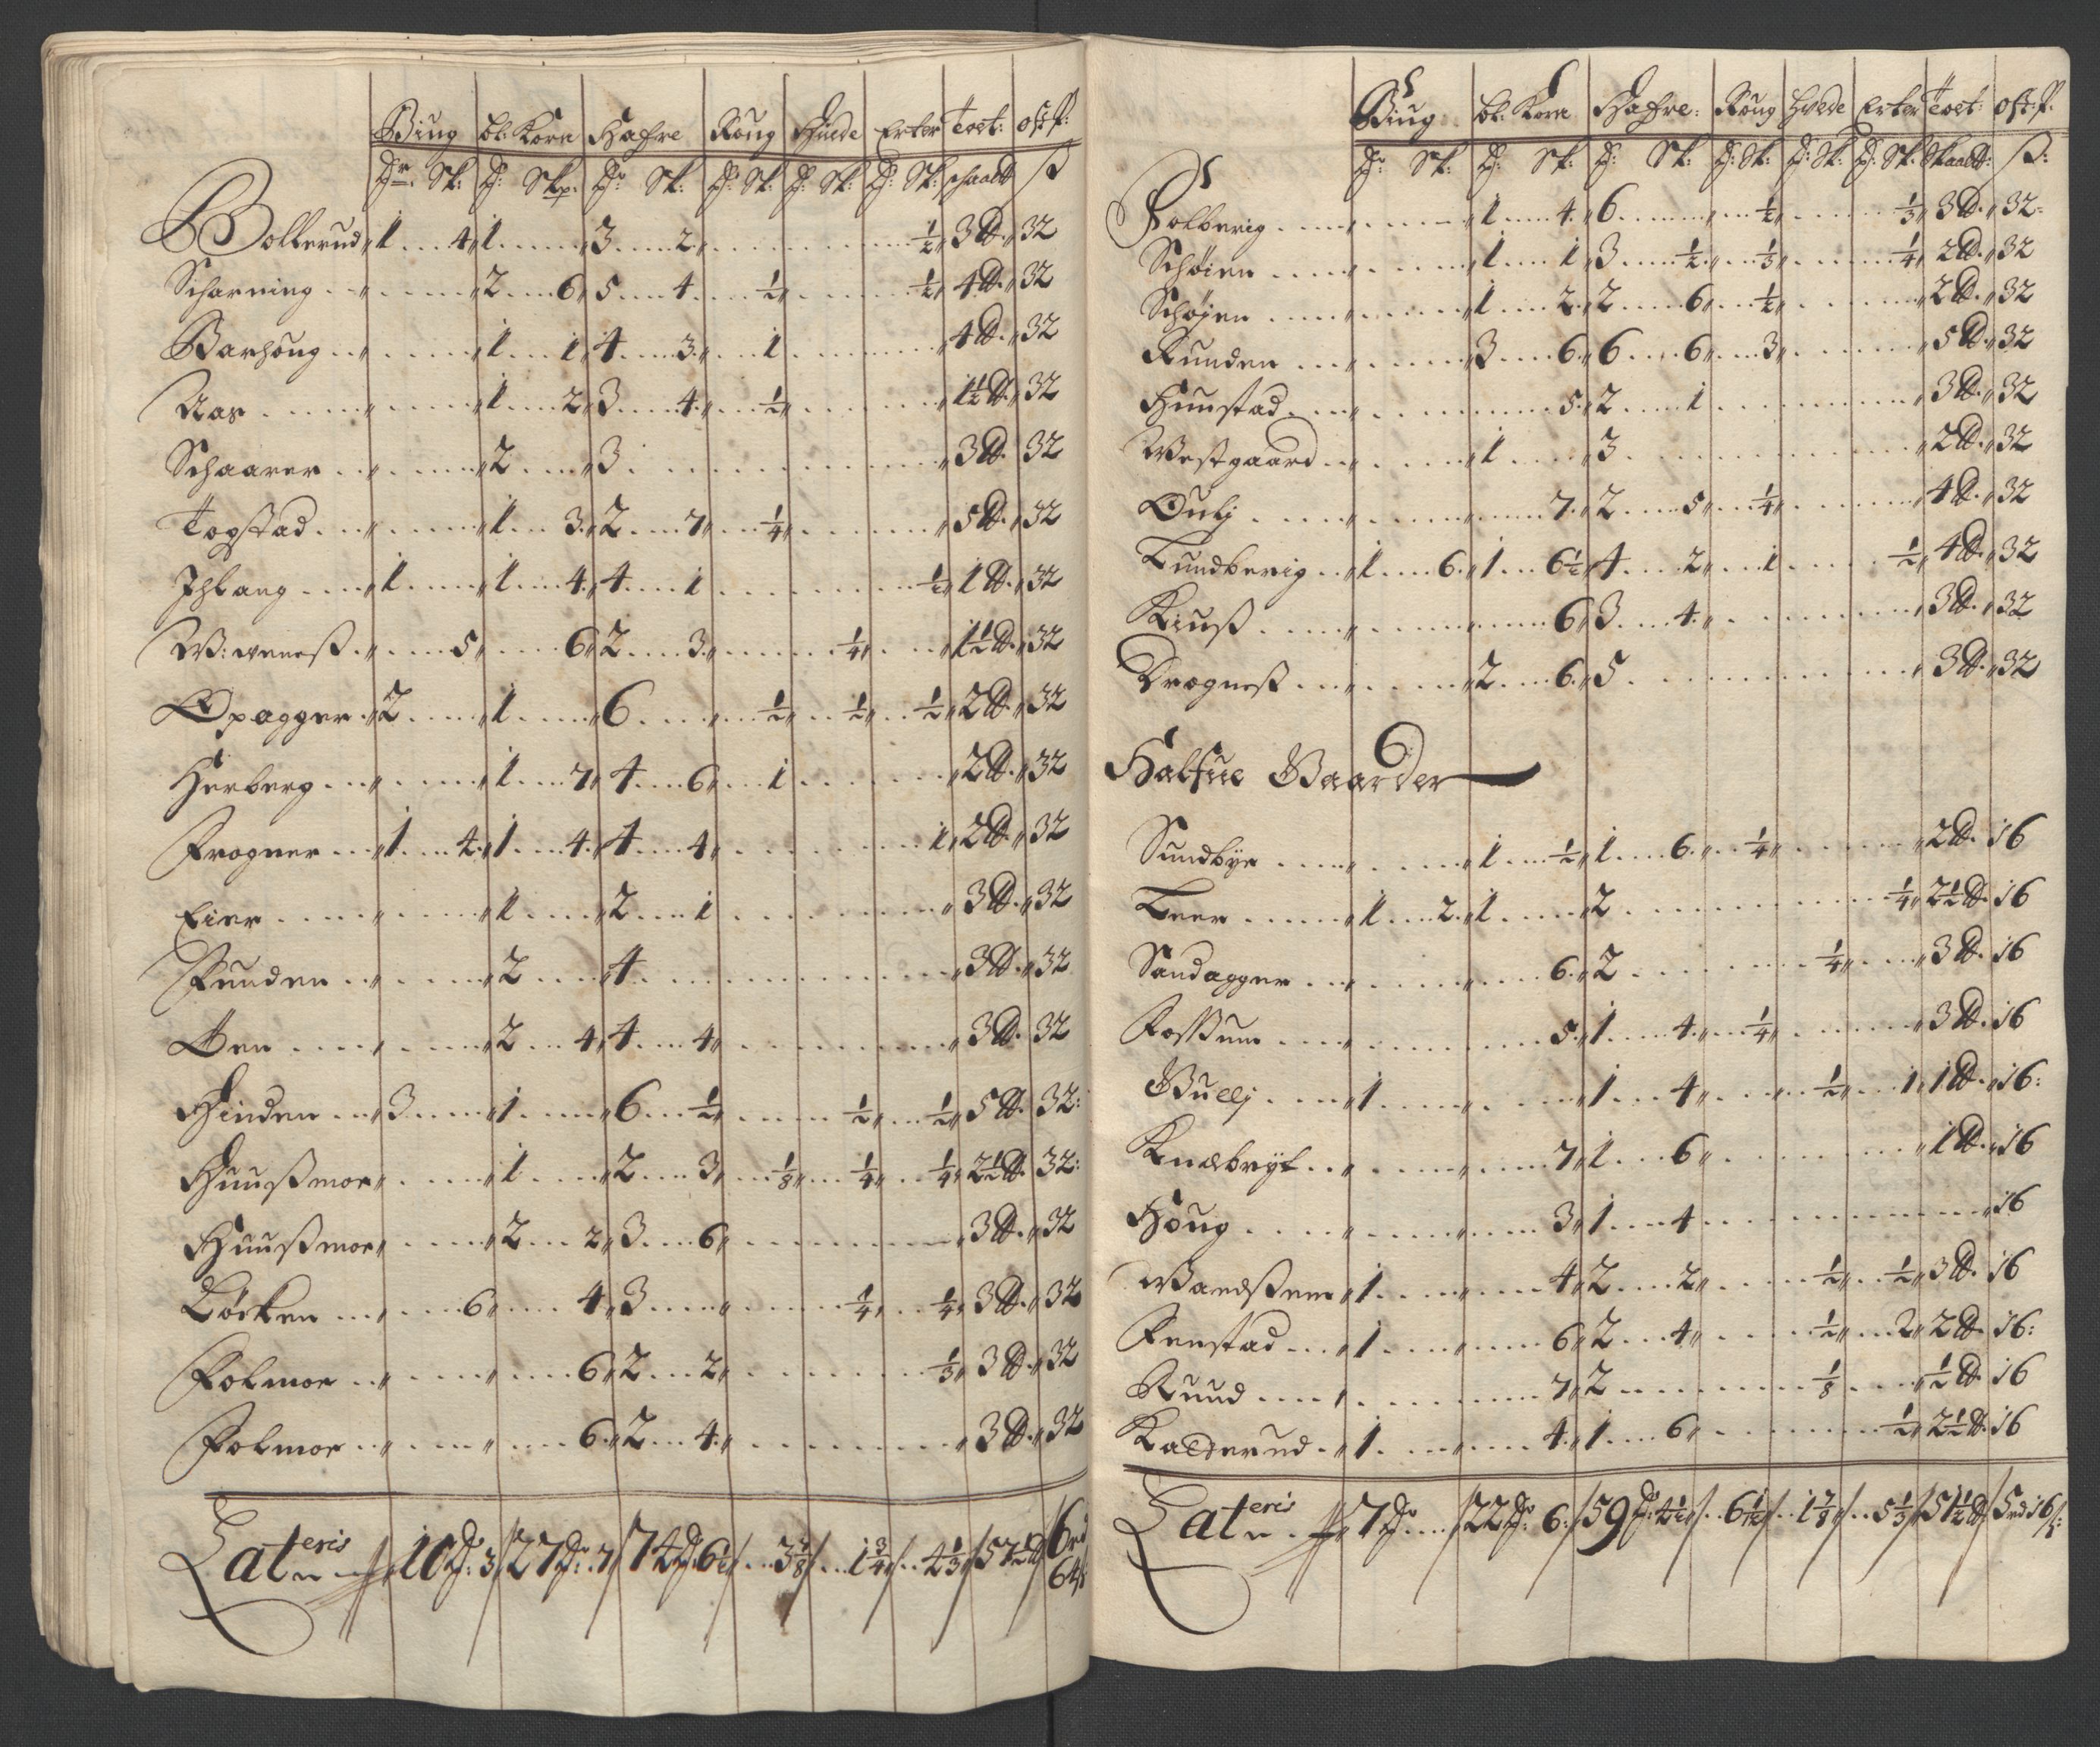 Biug bl: Korn Hafre Roug Huede Erter Toet: ost p:
Dr. Sk: D: Skp: Dr Sk: D: Sk: D: Sk: D: Sk: schaald ß
Bollerud 1 4 1 3 2 ½ 3 ℔ 32
Scharning 2 6 5 4 ½ ½ 4 ℔ 32
Barhoug 1 1 4 3 1 4 ℔ 32
Aas 1 2 3 4 ½ 1½ ℔ 32
Schaarer 2 3 3 ℔ 32
Togstad 1 3 2 7 ¼ 5 ℔ 32
Ihlang 1 1 4 4 1 ½ 1 ℔ 32
W: weness 5 6 2 3 ¼ 1½ ℔ 32
Opagger 2 1 6 ½ ½ ½ 2 ℔ 32
Herberg 1 7 4 6 1 2 ℔ 32
Frogner 1 4 1 4 4 4 1 2 ℔ 32
Eier 1 2 1 3 ℔ 32
Funden 2 4 3 ℔ 32
Oen 2 4 4 4 3 ℔ 32
Hinden 3 1 6 ½ ½ ½ 5 ℔ 32:
Huußmoe 1 2 3 ⅛ ¼ ¼ 2½ ℔ 32:
Huußmoe 2 2 3 6 3 ℔ 32
Löcken 6 4 3 ¼ ¼ 3 ℔ 32
Folmoe 6 2 2 ⅓ 3 ℔ 32
Folmoe 6 2 4 3 ℔ 32
Lateris 10 Dr: 3 27 Dr: 7 74 D: 6½ 3⅞ 1¾ 4⅓ 57½ ℔ 6 rd
64 ß
Biug bl: Korn Hafre: Roug Hvede Erter Toet: ost: p:
Dr: Sk: D: Sk: D: Sk: D: Sk: D: Sk: D: Sk: Skaald: ß:
Folberig 1 4 6 ½ ⅓ 3 ℔ 32
Schöien 1 1 3 ½ ⅓ ¼ 2 ℔ 32
Schöyen 1 2 2 6 ½ 2 ℔ 32
Runden 3 6 6 6 3 5 ℔ 32
Hunstad 5 2 1 3 ℔ 32
Westgaard 1 3 2 ℔ 32
Oulj 7 2 5 ¼ 4 ℔ 32
Lundberig 1 6 1 6½ 4 2 1 ½ 4 ℔ 32
Kiuß 6 3 4 3 ℔ 32
Drogneß 2 6 5 3 ℔ 32
Halfue Gaarder
Sundbye 1 ½ 1 6 ¼ 2 ℔ 16
Leer 1 2 1 2 ¼ 2½ ℔ 16
Sandagger 6 2 ¼ 3 ℔ 16
Foßum 5 1 4 ¼ 3 ℔ 16
Gullj 1 1 4 ½ 1 1 ℔ 16:
Knabryt 7 1 6 1 ℔ 16
Houg 3 1 4 16
Wandßem 1 4 2 2 ½ ½ 3 ℔ 16
Fenstad 1 6 2 4 ½ 2 2 ℔ 16:
Ruud 7 2 ⅛ ½ ℔ 16
Kalderud 1 4 1 6 ½ 2½ ℔ 16
Lateris 7 Dr 22 Dr: 6 59 Dr: 4½ 1⅞ 5⅓ 51½ ℔ 5 rd 16 ß